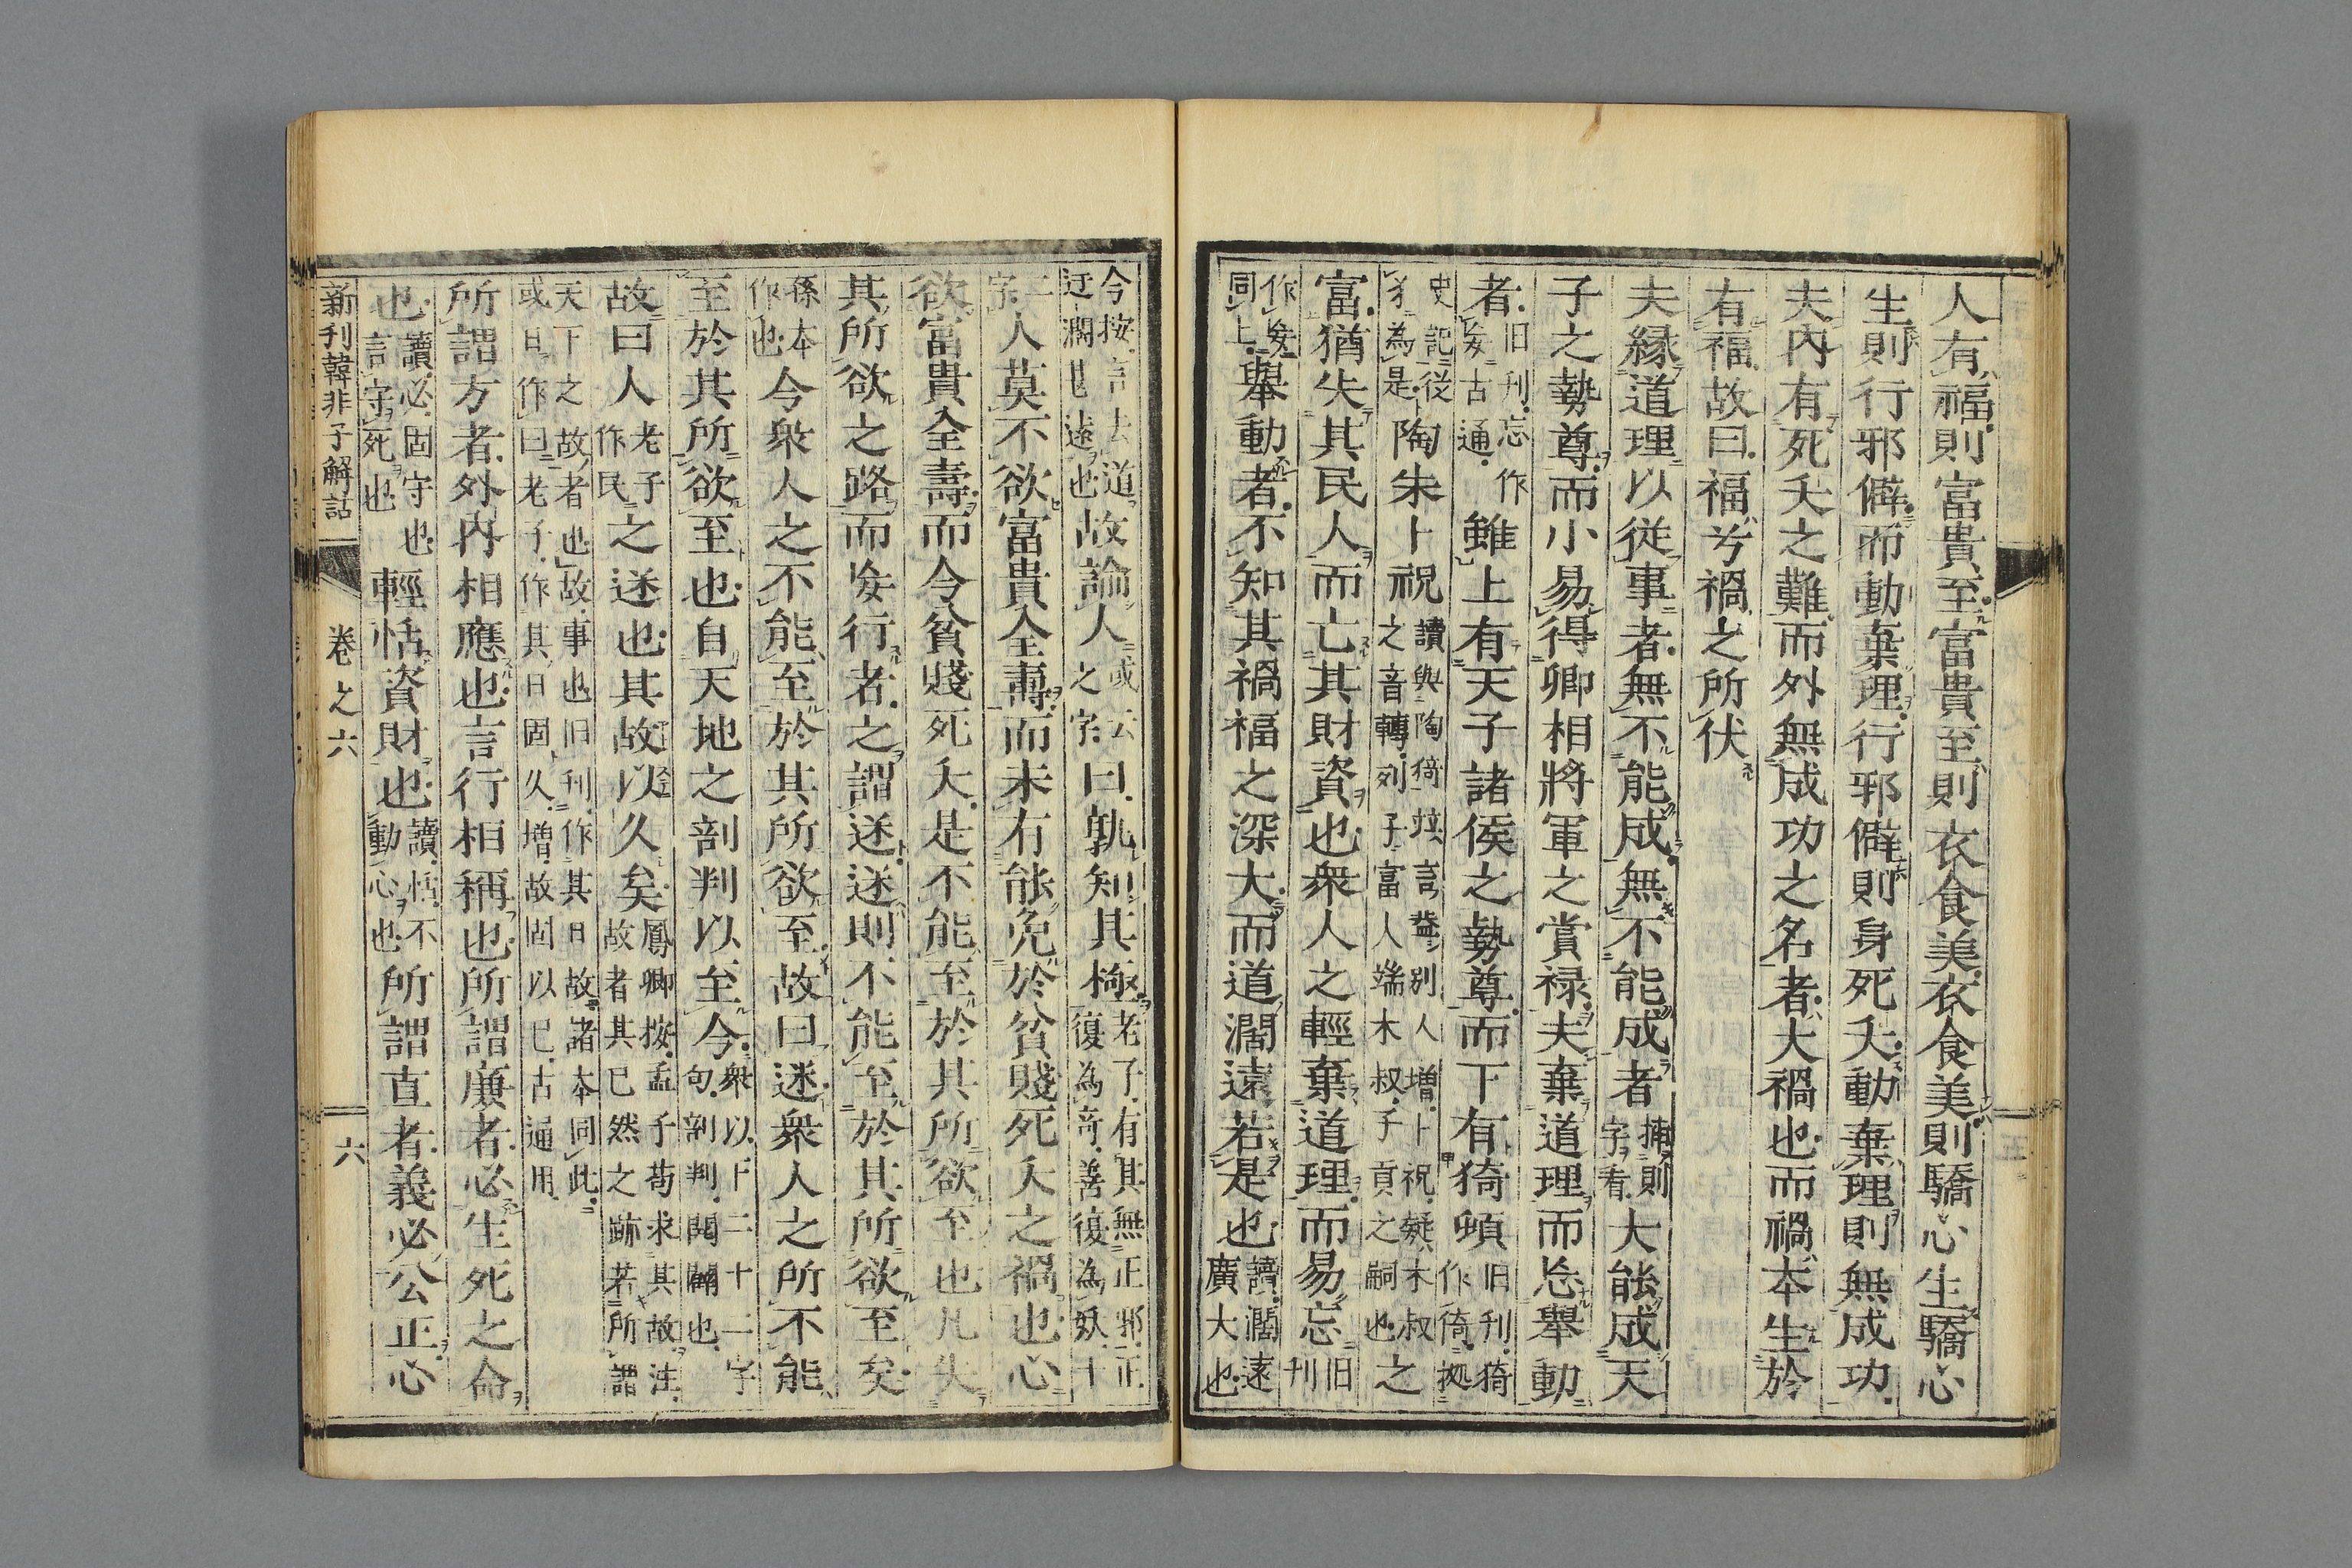 人有福則富貴至富貴至則衣食美衣食美則驕心生驕心
生則行邪僻而動棄理行邪僻則身死夭動棄理則無成功
夫內有死夭之難而外無成功之名者大禍也而禍本生於
有福故曰福兮禍之所伏
夫緣道理以從事者無不能成無不能成者
字看
大能成天
子之勢尊而小易得卿相將軍之賞禄夫棄道理而忘舉動
者
旧刊忘作
妄古通
雖上有天子諸侯之勢尊而下有猗頓
旧刊猗
作倚拠
史記從
犭為是
陶朱卜祝
讀與陶猗竝言蓋別人増卜祝疑木叔
之音轉列子富人端木叔子貢之嗣也
之
富猶失其民人而亡其財資也衆人之輕棄道理而易忘
旧
刊
作妄
同上
舉動者不知其禍福之深大而道濶遠若是也
讀濶遠
廣大也
今按言去道
迂濶甚遠也
故諭人
或云
之字
曰孰知其極
老子有其無正邪正
復為奇善復為妖十
二
字
人莫不欲富貴全壽而未有能免於貧賤死夭之禍也心
欲富貴全壽而今貧賤死夭是不能至於其所欲至也凡失
其所欲之路而妄行者之謂迷迷則不能至於其所欲至矣
孫本
作也
今衆人之不能至於其所欲至故曰迷衆人之所不能
至於其所欲至也自天地之剖判以至今
衆以下二十二字
句剖判開闢也
故曰人
老子
作民
之迷也其故以久矣
鳳卿按孟子苟求其故注
故者其已然之跡若所謂
天下之故者也故事也旧刊作其日故諸本同此
或曰作曰老子作其日固久増故固以已古通用
所謂方者外內相應也言行相稱也所謂廉者必生死之命
也
讀必固守也
言守死也
輕恬資財也
讀恬不
動心也
所謂直者義必公正心
新刊韓非子解詁
卷之六
六